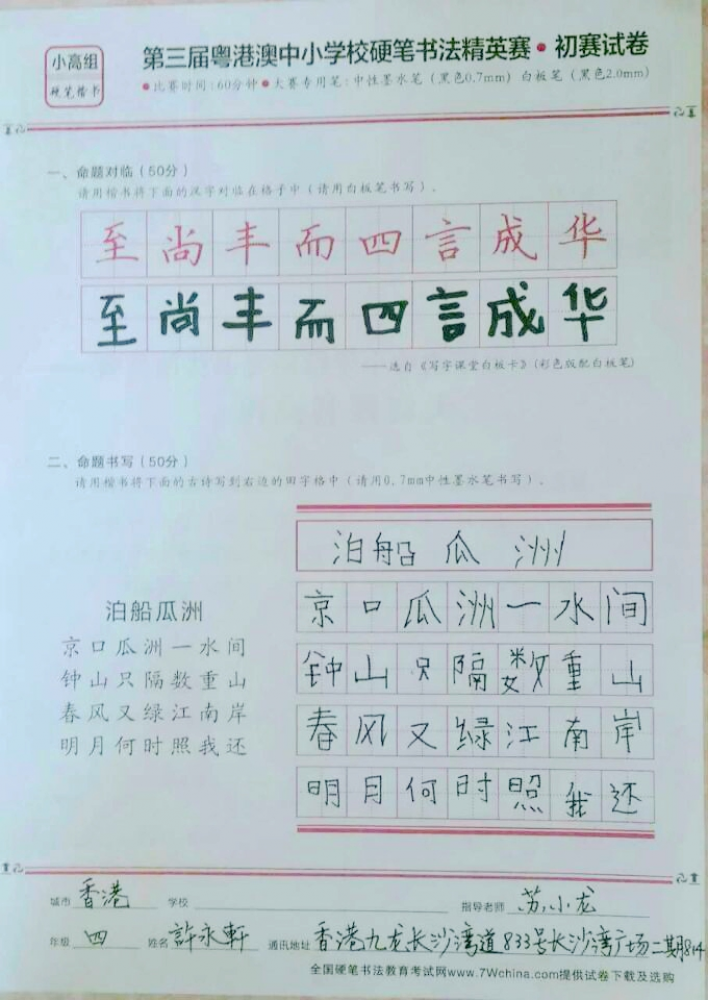 小高组
硬笔楷书
第三届粤港澳中小学校硬笔书法精英赛·初赛试卷
●比赛时间:60分钟●大赛专用笔:中性墨水笔（黑色0.7mm）白板笔（黑色2.0mm）
一、命题对临（50分）
请用楷书将下面的汉字对临在格子中（请用白板笔书写）。
至尚丰而四言成华
至尚丰而四言成华
——选自《写字课堂白板卡》(彩色版配白板笔)
二、命题书写（50分）
请用楷书将下面的古诗写到右边的田字格中（请用0.7mm中性墨水笔书写）。
泊船瓜洲
京口瓜洲一水间
钟山只隔数重山
春风又绿江南岸
明月何时照我还
泊船瓜洲
京口瓜洲一水间
钟山只隔数重山
春风又绿江南岸
明月何时照我还
城市 香港 学校 指导老师 苏小龙
年级 四 姓名 許永軒 通讯地址 香港九龙长沙湾道833号长沙湾广场二期814
全国硬笔书法教育考试网www.7Wchina.com提供试卷下载及选购